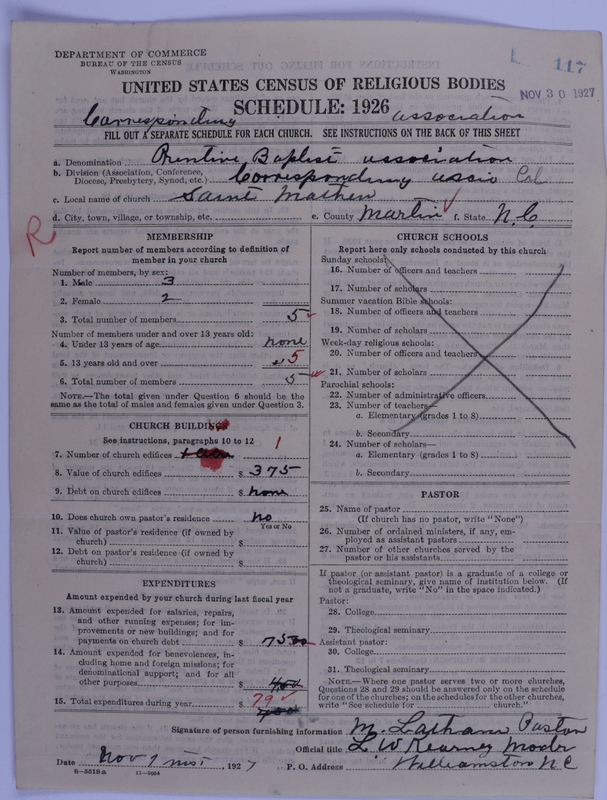 DEPARTMENT OF COMMERCE
BUREAU OF THE CENSUS
WASHINGTON
117
NOV 30 1927
UNITED STATES CENSUS OF RELIGIOUS BODIES
SCHEDULE: 1926
Corresponding association
FILL OUT A SEPARATE SCHEDULE FOR EACH CHURCH. SEE INSTRUCTIONS ON THE BACK OF THIS SHEET
a. Denomination Baptist association
b. Division (Association, Conference, Diocese, Presbytery, Synod, etc.) Corresponding assio Col
c. Local name of church Saint Mathew
d. City, town, village, or township, etc. e. County Martin f. State N.C.
R
MEMBERSHIP
Report number of members according to definition of
member in your church
Number of members, by sex:
1. Male 3
2. Female 2
3. Total number of members 5
Number of members under and over 13 years old:
4. Under 13 years of age none
5. 13 years old and over 5
6. Total number of members 5
NOTE.—The total given under Question 6 should be
same as the total of males and females given under Question 3.
CHURCH BUILDINGS
See instructions, paragraphs 10 to 12
7. Number of church edifices 1
8. Value of church edifices $ 375
9. Debt on church edifices $ none
10. Does church own pastor's residence No
Yes or No
11. Value of pastor's residence (if owned by
church) $
12. Debt on pastor's residence (if owned by
church) $
EXPENDITURES
Amount expended by your church during last fiscal year
13. Amount expended for salaries, repairs,
and other running expenses; for im-
provements or new buildings; and for
payments on church debt $ 75
14. Amount expended for benevolences, in-
cluding home and foreign missions; for
denominational support; and for all
other purposes $ 4
15. Total expenditures during year $ 79
CHURCH SCHOOLS
Report here only schools conducted by this church
Sunday schools:
16. Number of officers and teachers
17. Number of scholars
Summer vacation Bible schools:
18. Number of officers and teachers
19. Number of scholars
Week-day religious schools:
20. Number of officers and teachers
21. Number of scholars
Parochial schools:
22. Number of administrative officers
23. Number of teachers—
a. Elementary (grades 1 to 8)
b. Secondary
24. Number of scholars—
a. Elementary (grades 1 to 8)
b. Secondary
PASTOR
25. Name of pastor
(If church has no pastor, write "None")
26. Number of ordained ministers, if any, em-
ployed as assistant pastors
27. Number of other churches served by the
pastor or his assistants
If pastor (or assistant pastor) is a graduate of a college or
theological seminary, give name of institution below. (If
not a graduate, write "No" in the space indicated.)
Pastor:
28. College
29. Theological seminary
Assistant pastor:
30. College
31. Theological seminary
NOTE.—Where one pastor serves two or more churches,
Questions 28 and 29 should be answered only on the schedule
for one of the churches; on the schedules for the other churches,
write "See schedule for church."
Signature of person furnishing information M. Latham Pastor
Official title L W Kearney Moder
Date Nov 7 inst, 1927 P. O. Address Williamston N C
8—5518a 11—9064